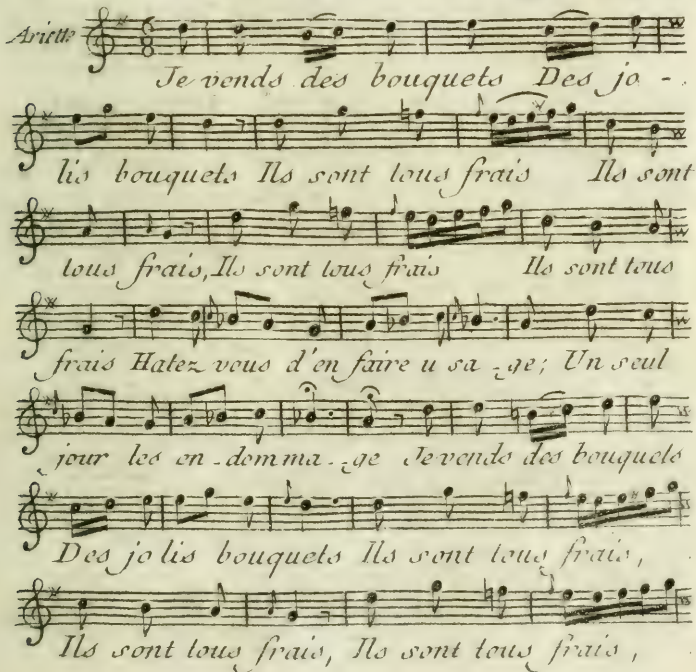 Ariette
Je vends des bouquets Des jo -
lis bouquets Ils sont tous frais Ils sont
tous frais, Ils sont tous frais Ils sont tous
frais Hatez vous d'en faire u sa - ge; Un seul
jour les en - domma - ge Je vends des bouquets
Des jo lis bouquets Ils sont tous frais,
Ils sont tous frais, Ils sont tous frais,